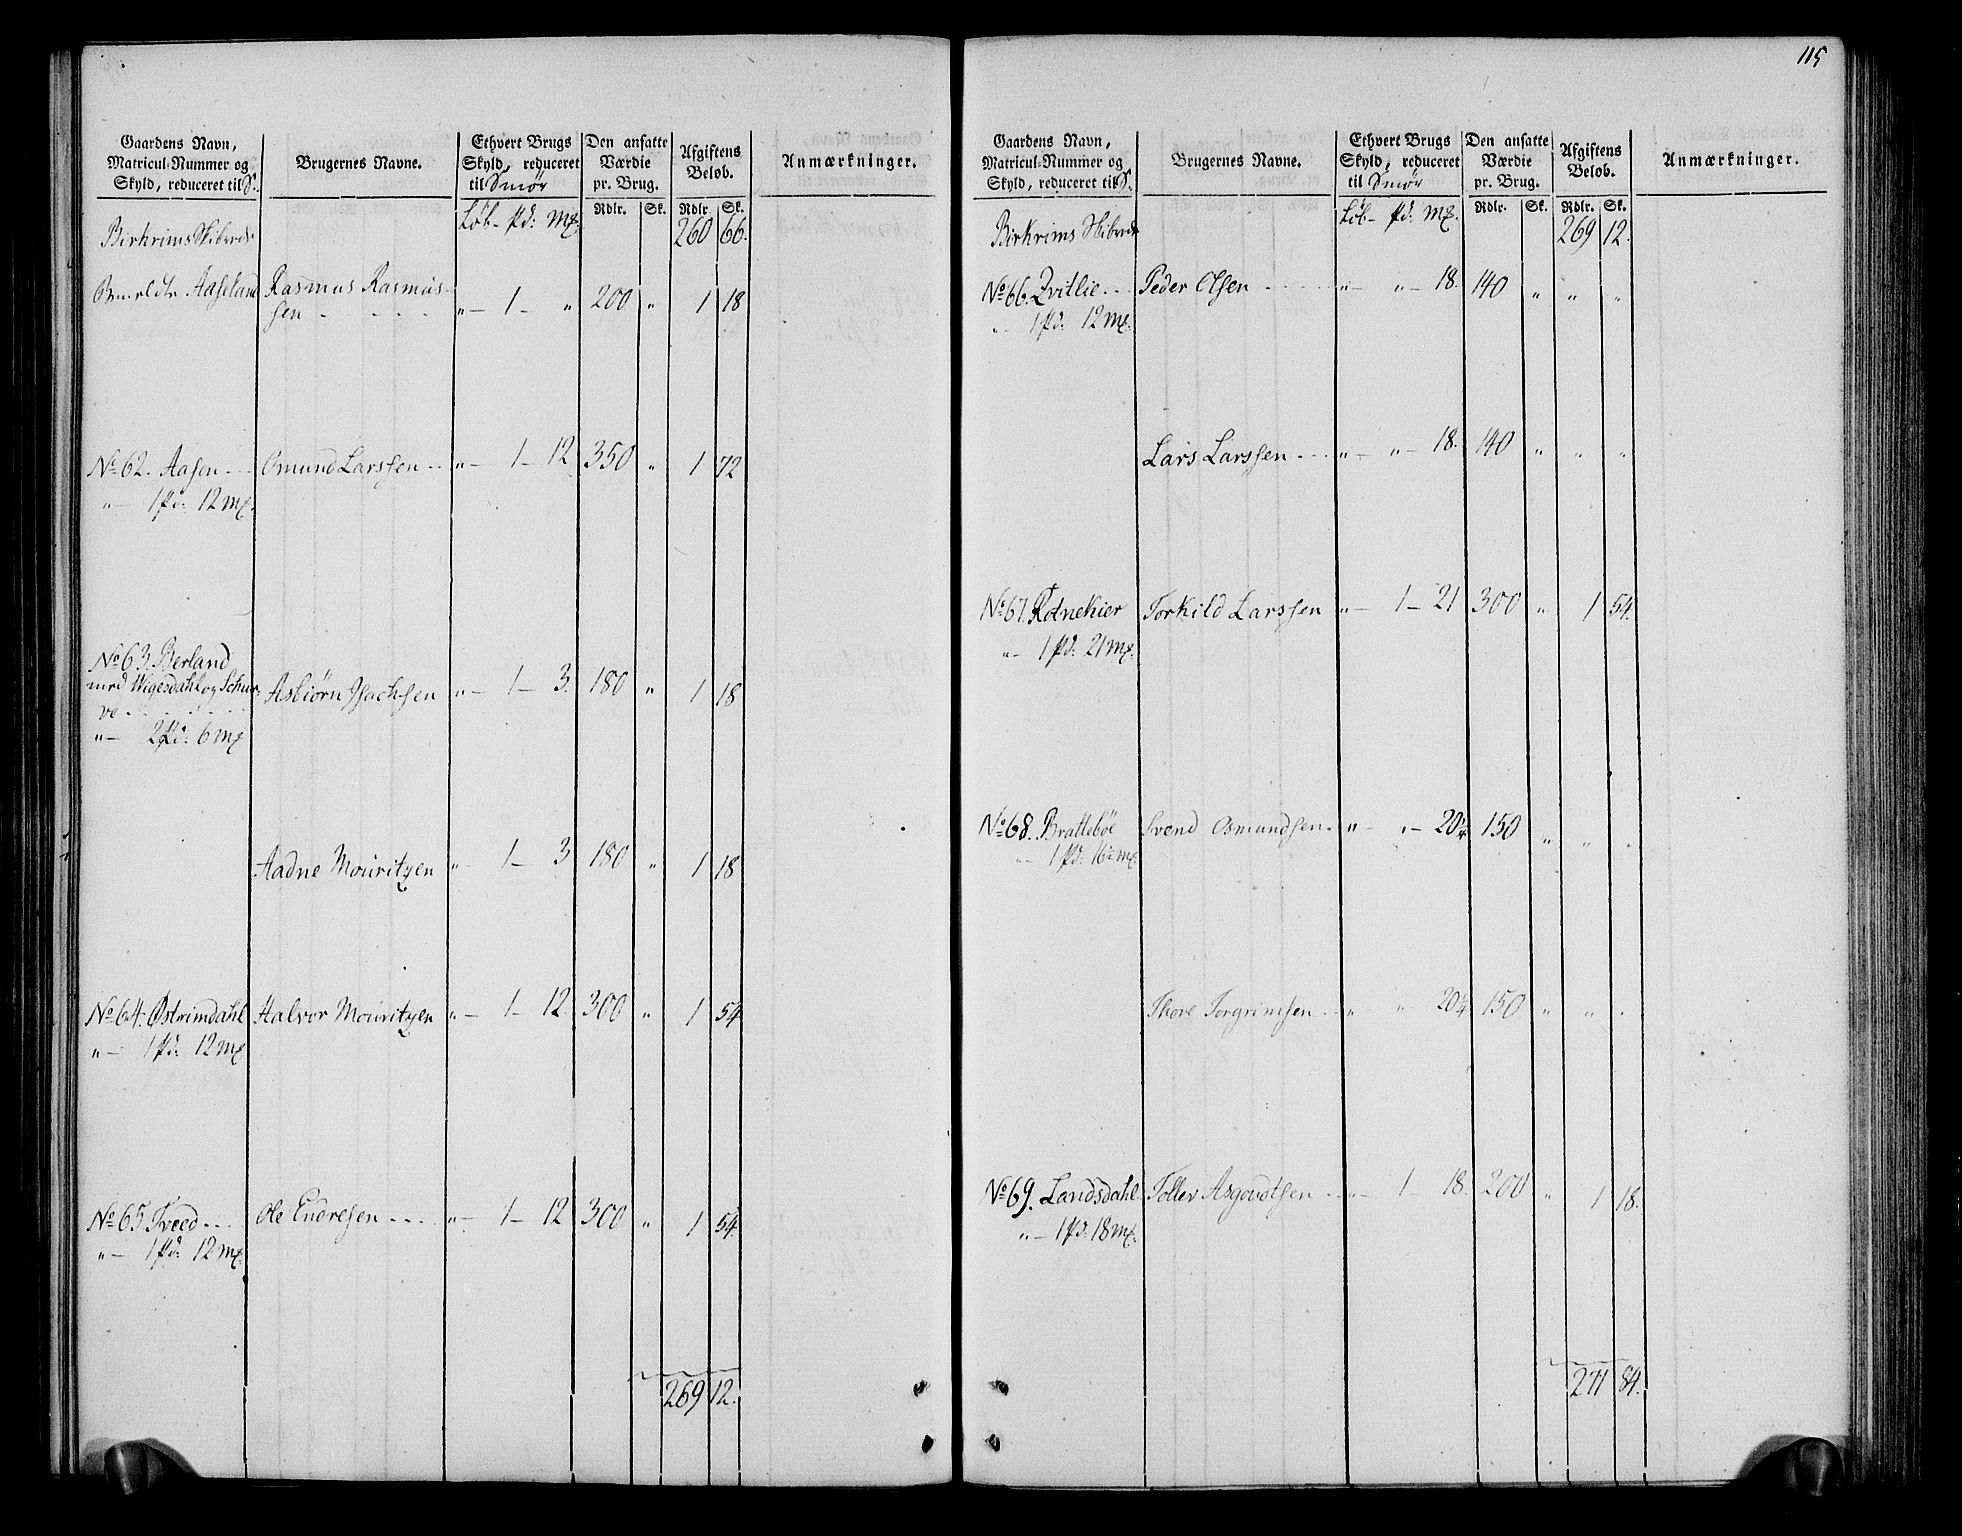 115
Gaardens Navn, Matricul-Nummer og Skyld, reduceret til S. | Brugernes Navne. | Ethvert Brugs Skyld, reduceret til Smør | Den ansatte Værdie pr. Brug. | Afgiftens Beløb. | Anmærkninger.
Løb - Pd: Mk. | Rdlr. | Sk. | Rdlr. | Sk.
Birkrims Skibrede 260 66.
Aaseland Rasmus Rasmus-
sen - . . . „ - 1 - „ 200 „ 1 18
No 62. Aasen - - - Omund Larssen - - „ - 1 - 12 350 „ 1 72
„ - 1 Pd: 12 Mk.
No 63. Berland
med Wigesdahl og Schur-
ve - - - - Asbiørn Isachsen „ - 1 - 3. 180 „ 1 18
„ - 2 Pd: 6 Mk
Aadne Mouritzen „ - 1 - 3 180 „ 1 18
No 64. Østrimdahl Halvor Mouritzen „ - 1 - 12. 300 „ 1 54
„ - 1 Pd: 12 Mk
No 65. Tveed - - - Ole Endresen - - - - „ - 1 - 12 300 „ 1 54.
„ - 1 Pd: 12 Mk.
269 12.
Gaardens Navn, Matricul-Nummer og Skyld, reduceret til S. | Brugernes Navne. | Ethvert Brugs Skyld, reduceret til Smør | Den ansatte Værdie pr. Brug. | Afgiftens Beløb. | Anmærkninger.
Løb - Pd: Mk. | Rdlr. | Sk. | Rdlr. | Sk.
Birkrims Skibrede 269 12.
No 66. Qvitlie - - Peder Olsen - - - - „ - „ - 18. 140 „ „ „
„ - 1 Pd: 12 Mk.
Lars Larssen - - - „ - „ - 18. 140 „ „ „
No 67. Rotnekier Torkild Larssen „ - 1 - 21 300 „ 1 54.
„ - 1 Pd: 21 Mk.
No 68. Brattebøe Svend Osmundsen. „ - „ - 20¼ 150 „ „ „
„ - 1 Pd: 16½ Mk.
Thore Torgrimsen - - „ „ - 20¼ 150 „ „ „
No 69. Landsdahl Tollev Asgoudtsen - - „ - 1 - 18. 200 „ 1 18.
„ - 1 Pd: 18 Mk.
271 84.